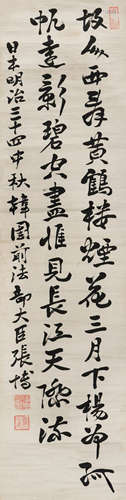 故人西辞黄鶴樓煙花三月下楊州孤
帆遠影碧空盡惟見長江天際流
日本明治三十四中秋韓國前法部大臣張博